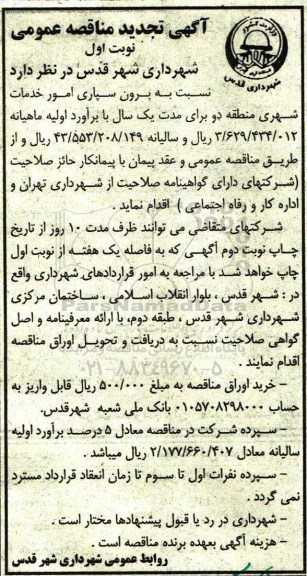 آگهی تجدید مناقصه عمومی
نوبت اول
شهرداری شهر قدس در نظر دارد
شهرداری قدس
نسبت به برون سپاری امور خدمات
شهری منطقه دو برای مدت یک سال با برآورد اولیه ماهیانه
۳/۶۲۹/۴۳۴/۰۱۲ ریال و سالیانه ۴۳/۵۵۳/۲۰۸/۱۴۹ ریال و از
طریق مناقصه عمومی و عقد پیمان با پیمانکار حائز صلاحیت
(شرکتهای دارای گواهینامه صلاحیت از شهرداری تهران و
اداره کار و رفاه اجتماعی ) اقدام نماید .
شرکتهای متقاضی می توانند ظرف مدت ۱۰ روز از تاریخ
چاپ نوبت دوم آگهی که به فاصله یک هفته از نوبت اول
چاپ خواهد شد با مراجعه به امور قراردادهای شهرداری واقع
در : شهر قدس ، بلوار انقلاب اسلامی ، ساختمان مرکزی
شهرداری شهر قدس ، طبقه دوم، با ارائه معرفینامه و اصل
گواهی صلاحیت نسبت به دریافت و تحویل اوراق مناقصه
اقدام نمایند .
۰۲۱-۸۸۳۴۹۶۷۰-۵
– خرید اوراق مناقصه به مبلغ ۵۰۰/۰۰۰ ریال قابل واریز به
حساب ۰۱۰۵۷۰۸۲۹۸۰۰۰ بانک ملی شعبه شهرقدس.
– سپرده شرکت در مناقصه معادل ۵ درصد برآورد اولیه
سالیانه معادل ۲/۱۷۷/۶۶۰/۴۰۷ ریال میباشد .
– سپرده نفرات اول تا سوم تا زمان انعقاد قرارداد مسترد
نمی گردد .
– شهرداری در رد یا قبول پیشنهادها مختار است .
– هزینه آگهی بعهده برنده مناقصه است .
روابط عمومی شهرداری شهر قدس